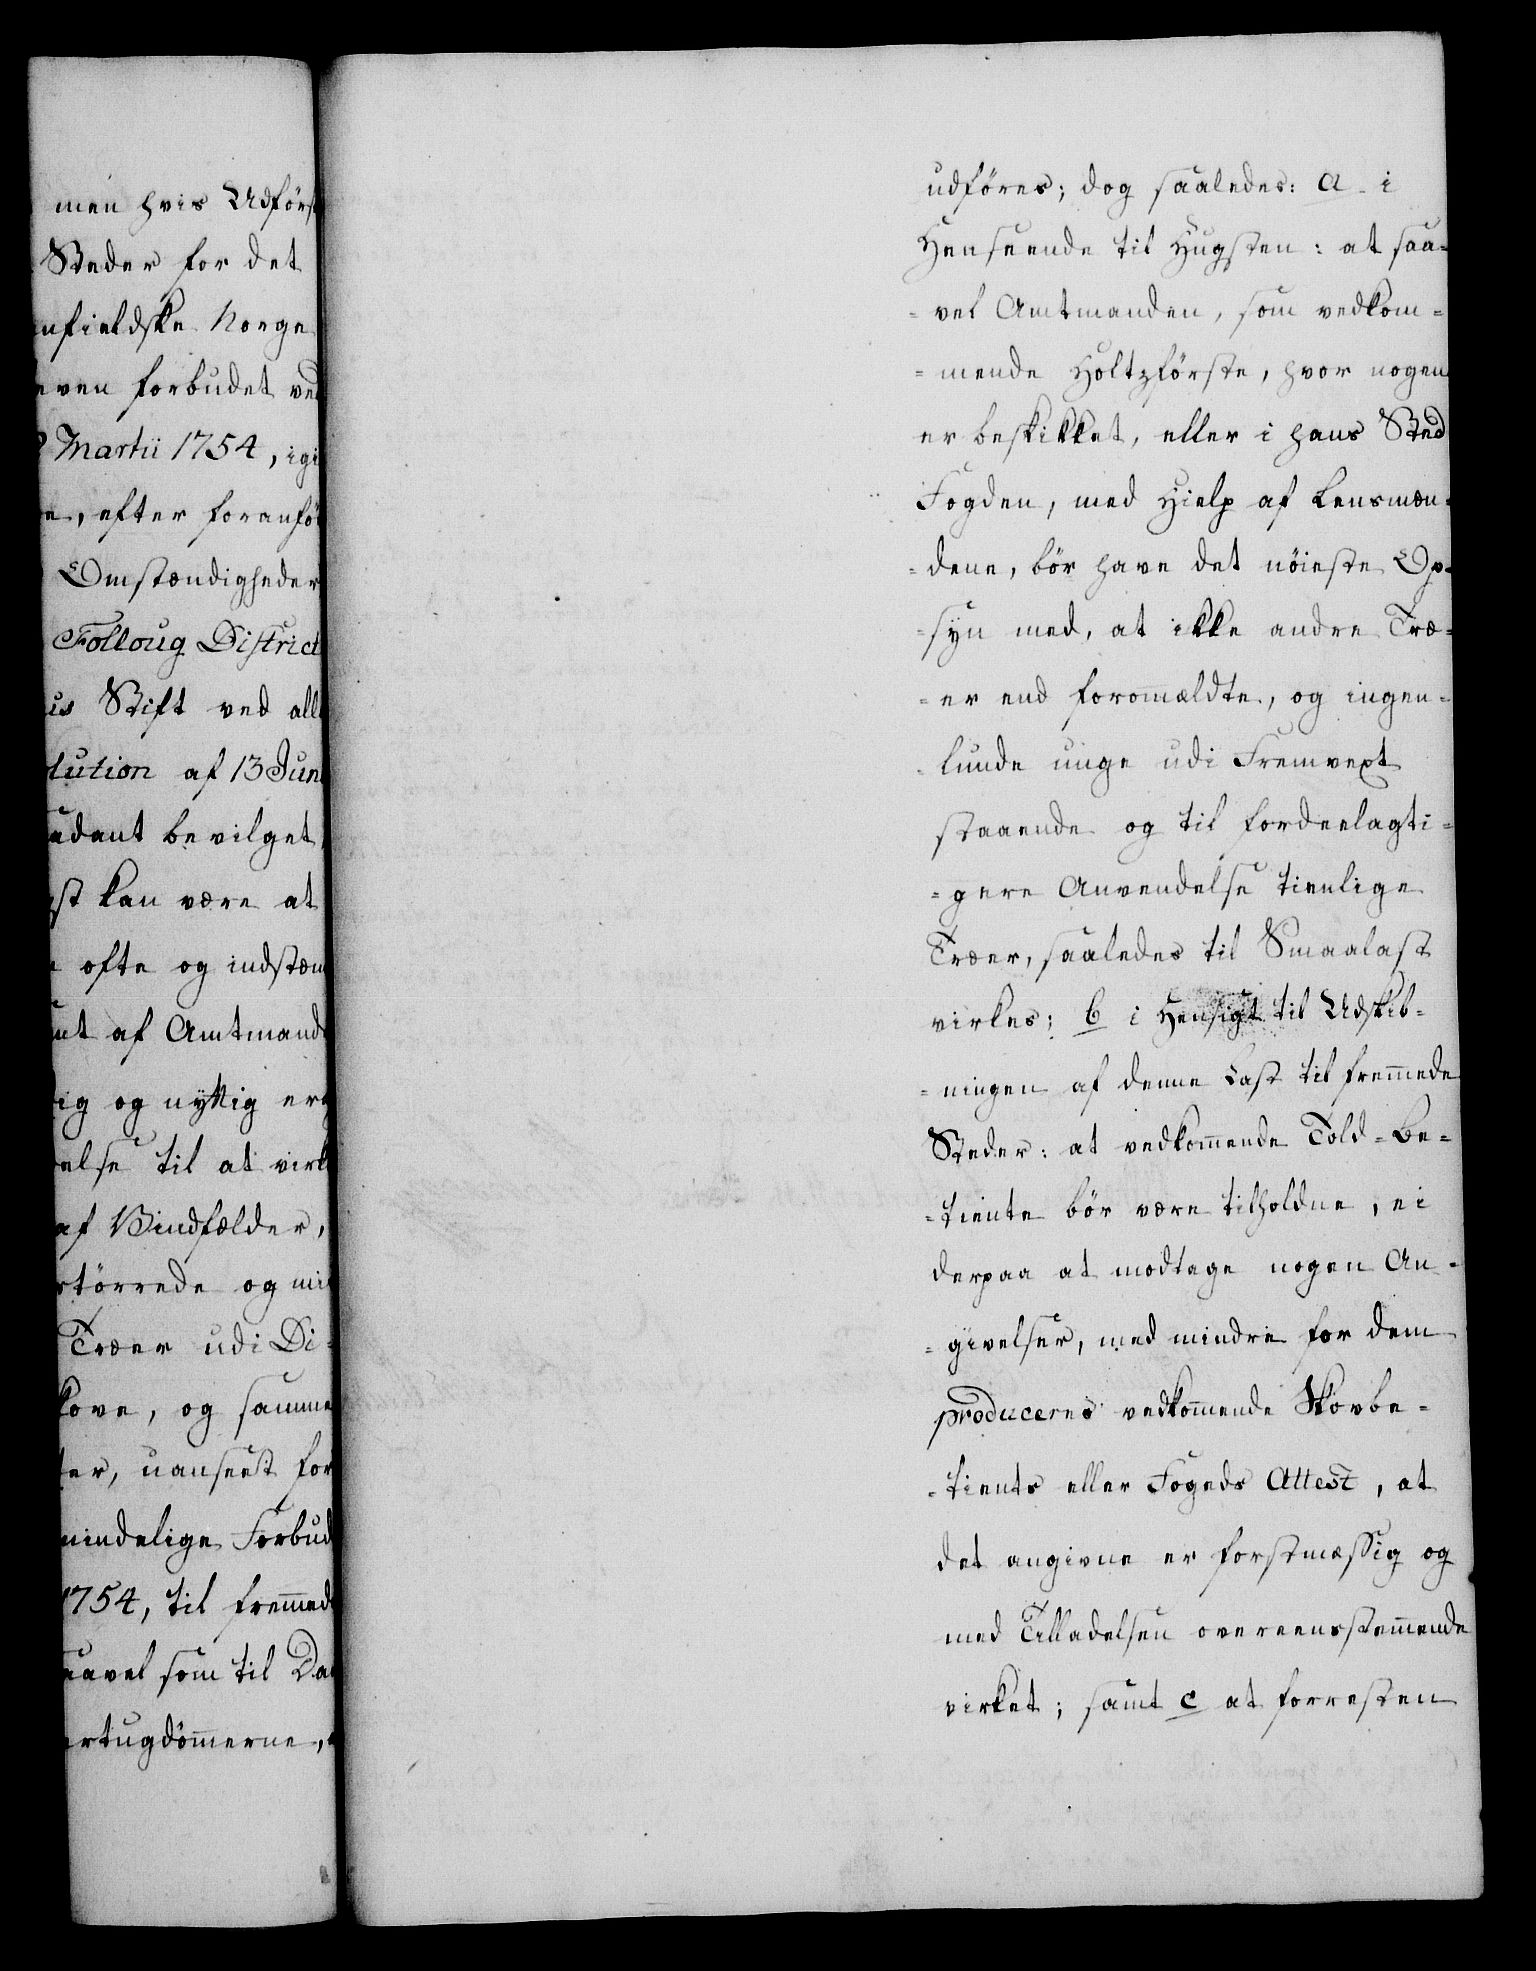 men hvis Udførs
Steder for det
nfieldske Norge
even forbudet ved
Martii 1754, igi
e, efter foranfø
Omstændigheder
Folloug District
us Stift ved all
lution af 13 Jun
adant bevilget,
st kan være at
ofte og indstæn
nt af Amtmand
ig og nyttig er
else til at virk
af Vindfælder,
tørrede og mi
Træer udi Di-
kove, og samme
ter, uanseet for
mindelige Forbud
1754, til fremmed
aavel som til Da
ertugdømmerne,
udføres; dog saaledes: a i
Henseende til Hugsten: at saa-
-vel Amtmanden, som vedkom-
-mende Holtzførste, hvor nogen
er beskikket, eller i hans Sted
Fogden, med Hielp af Lensmæn-
-dene, bør have det nøieste Op-
-syn med, at ikke andre Træ-
-er end forommældte, og ingen-
-lunde unge udi Fremvext
staaende og til fordeelagti-
-gere Anvendelse tienlige
Træer, saaledes til Smaalast
virkes; b i Hensigt til Udskib-
-ningen af denne Last til fremmede
Steder: at vedkommende Told-Be-
-tiente bør være tilholdne, ei
derpaa at modtage nogen An-
-givelser, med mindre for dem
produceres vedkommende Skovbe-
-tients eller Fogeds Attest, at
det angivne er forstmæssig og
med Tilladelsen overeensstemmende
virket; samt c at forresten